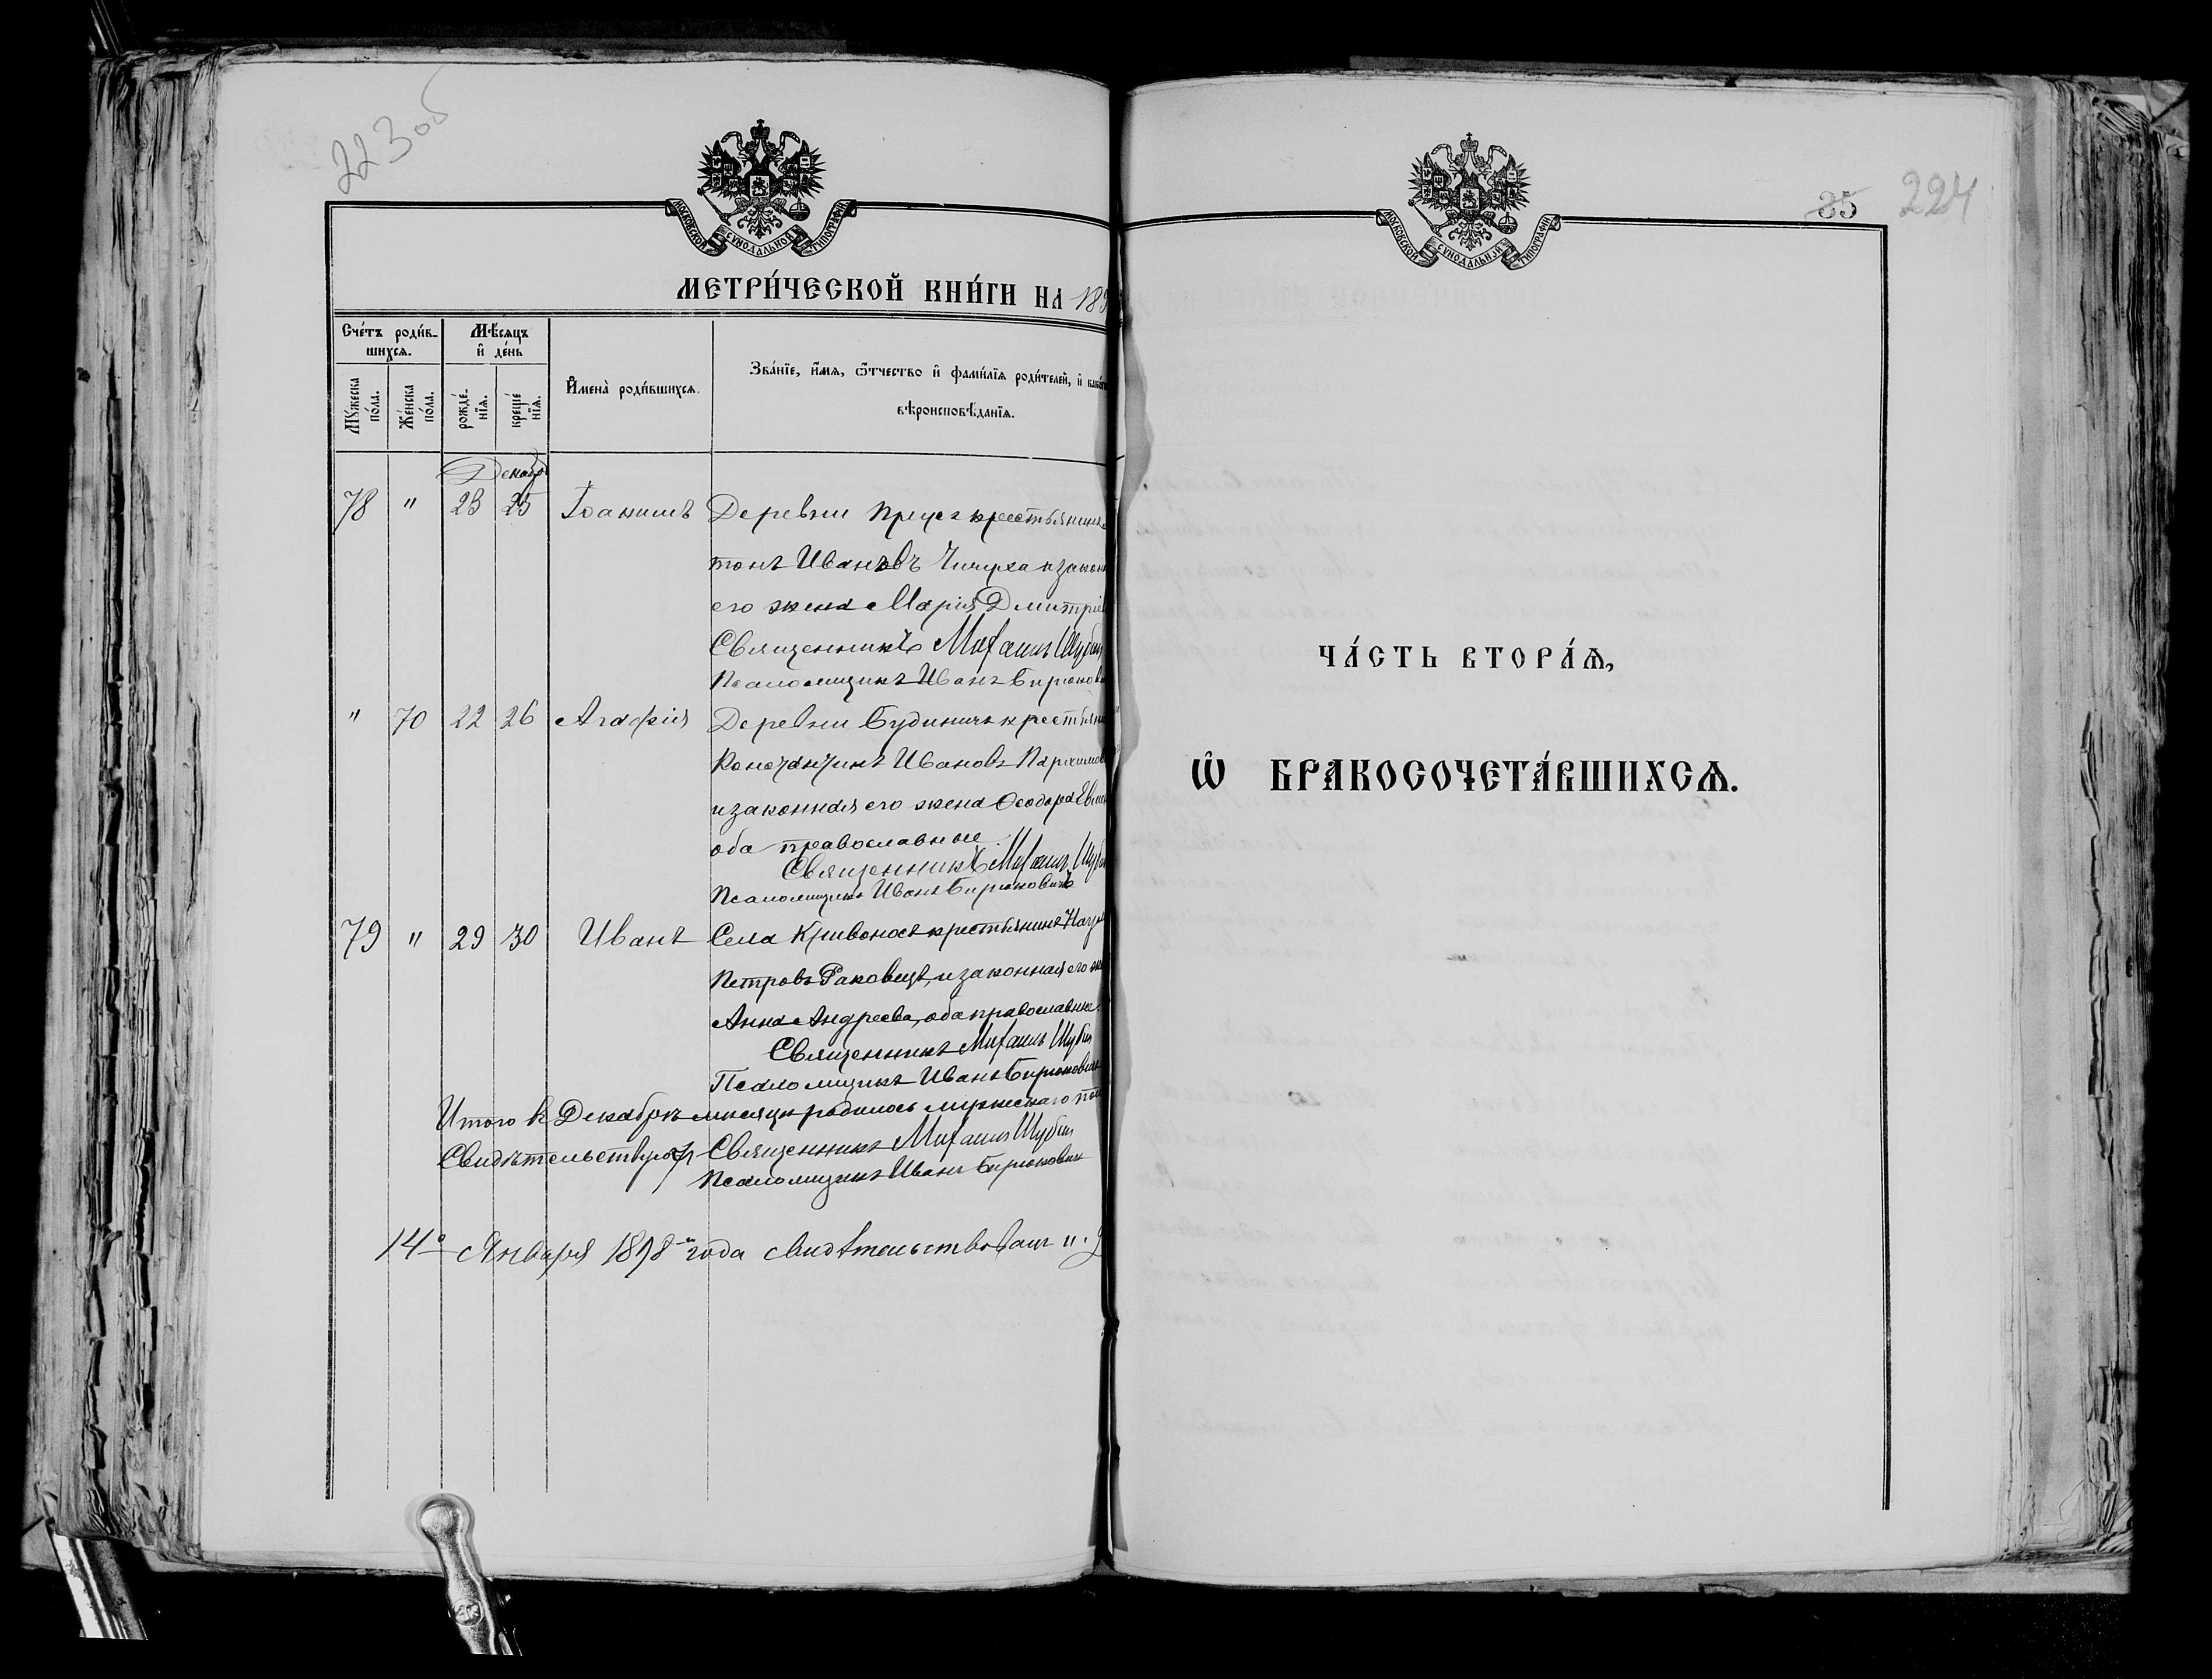 223об
МОСКОВСКОЙ СУНОДАЛЬНОЙ ТИПОГРАФІИ
МЕТРИ́ЧЕСКОЙ КНИ́ГИ НА 189
Сче́тъ роди́в-
шихсѧ.
Мѣ́сѧцъ
и҆ де́нь
Мꙋ́жеска
по́ла.
Же́нска
по́ла.
рожде́-
нїѧ.
креще́
нїѧ.
И҆мена̀ роди́вшихсѧ.
Зва́нїе, и҆́мѧ, ѻ҆́тчество и҆ фами́лїѧ роди́телей, и҆
вѣроисповѣ́данїѧ.
Декабр
78 " 23 25 Іоакимъ Деревни крестьянинъ
тонъ Ивановъ Чичуха и закон
его жена Марія Дмитрі
Священникъ Михаилъ Шуб
Псаломщикъ Иванъ Бирюков
" 70 22 26 Агафія Деревни Будиничъ крестьян
Константинъ Ивановъ Пархимов
и законная его жена Ѳеодора
оба православные
Священникъ Михаилъ Шуб
Псаломщикъ Иванъ Бирюковичъ
79 " 29 30 Иванъ Села Кривоносъ крестьянинъ
Петровъ Раковецъ, и законная его
Анна Андреева, оба православные.
Священникъ Михаилъ Шубин
Псаломщикъ Иванъ Бирюкович
Итого въ Декабрѣ мѣсяцѣ родилось мужескаго пол
Свидѣтельствуютъ Священникъ Михаилъ Шубин
Псаломщикъ Иванъ Бирюкович
14го Января 1898 года свидѣтельствовалъ
МОСКОВСКОЙ СУНОДАЛЬНОЙ ТИПОГРАФІИ
35 224
ЧА́СТЬ ВТОРА́Ѧ,
Ѽ БРАКОСОЧЕТА́ВШИХСѦ.